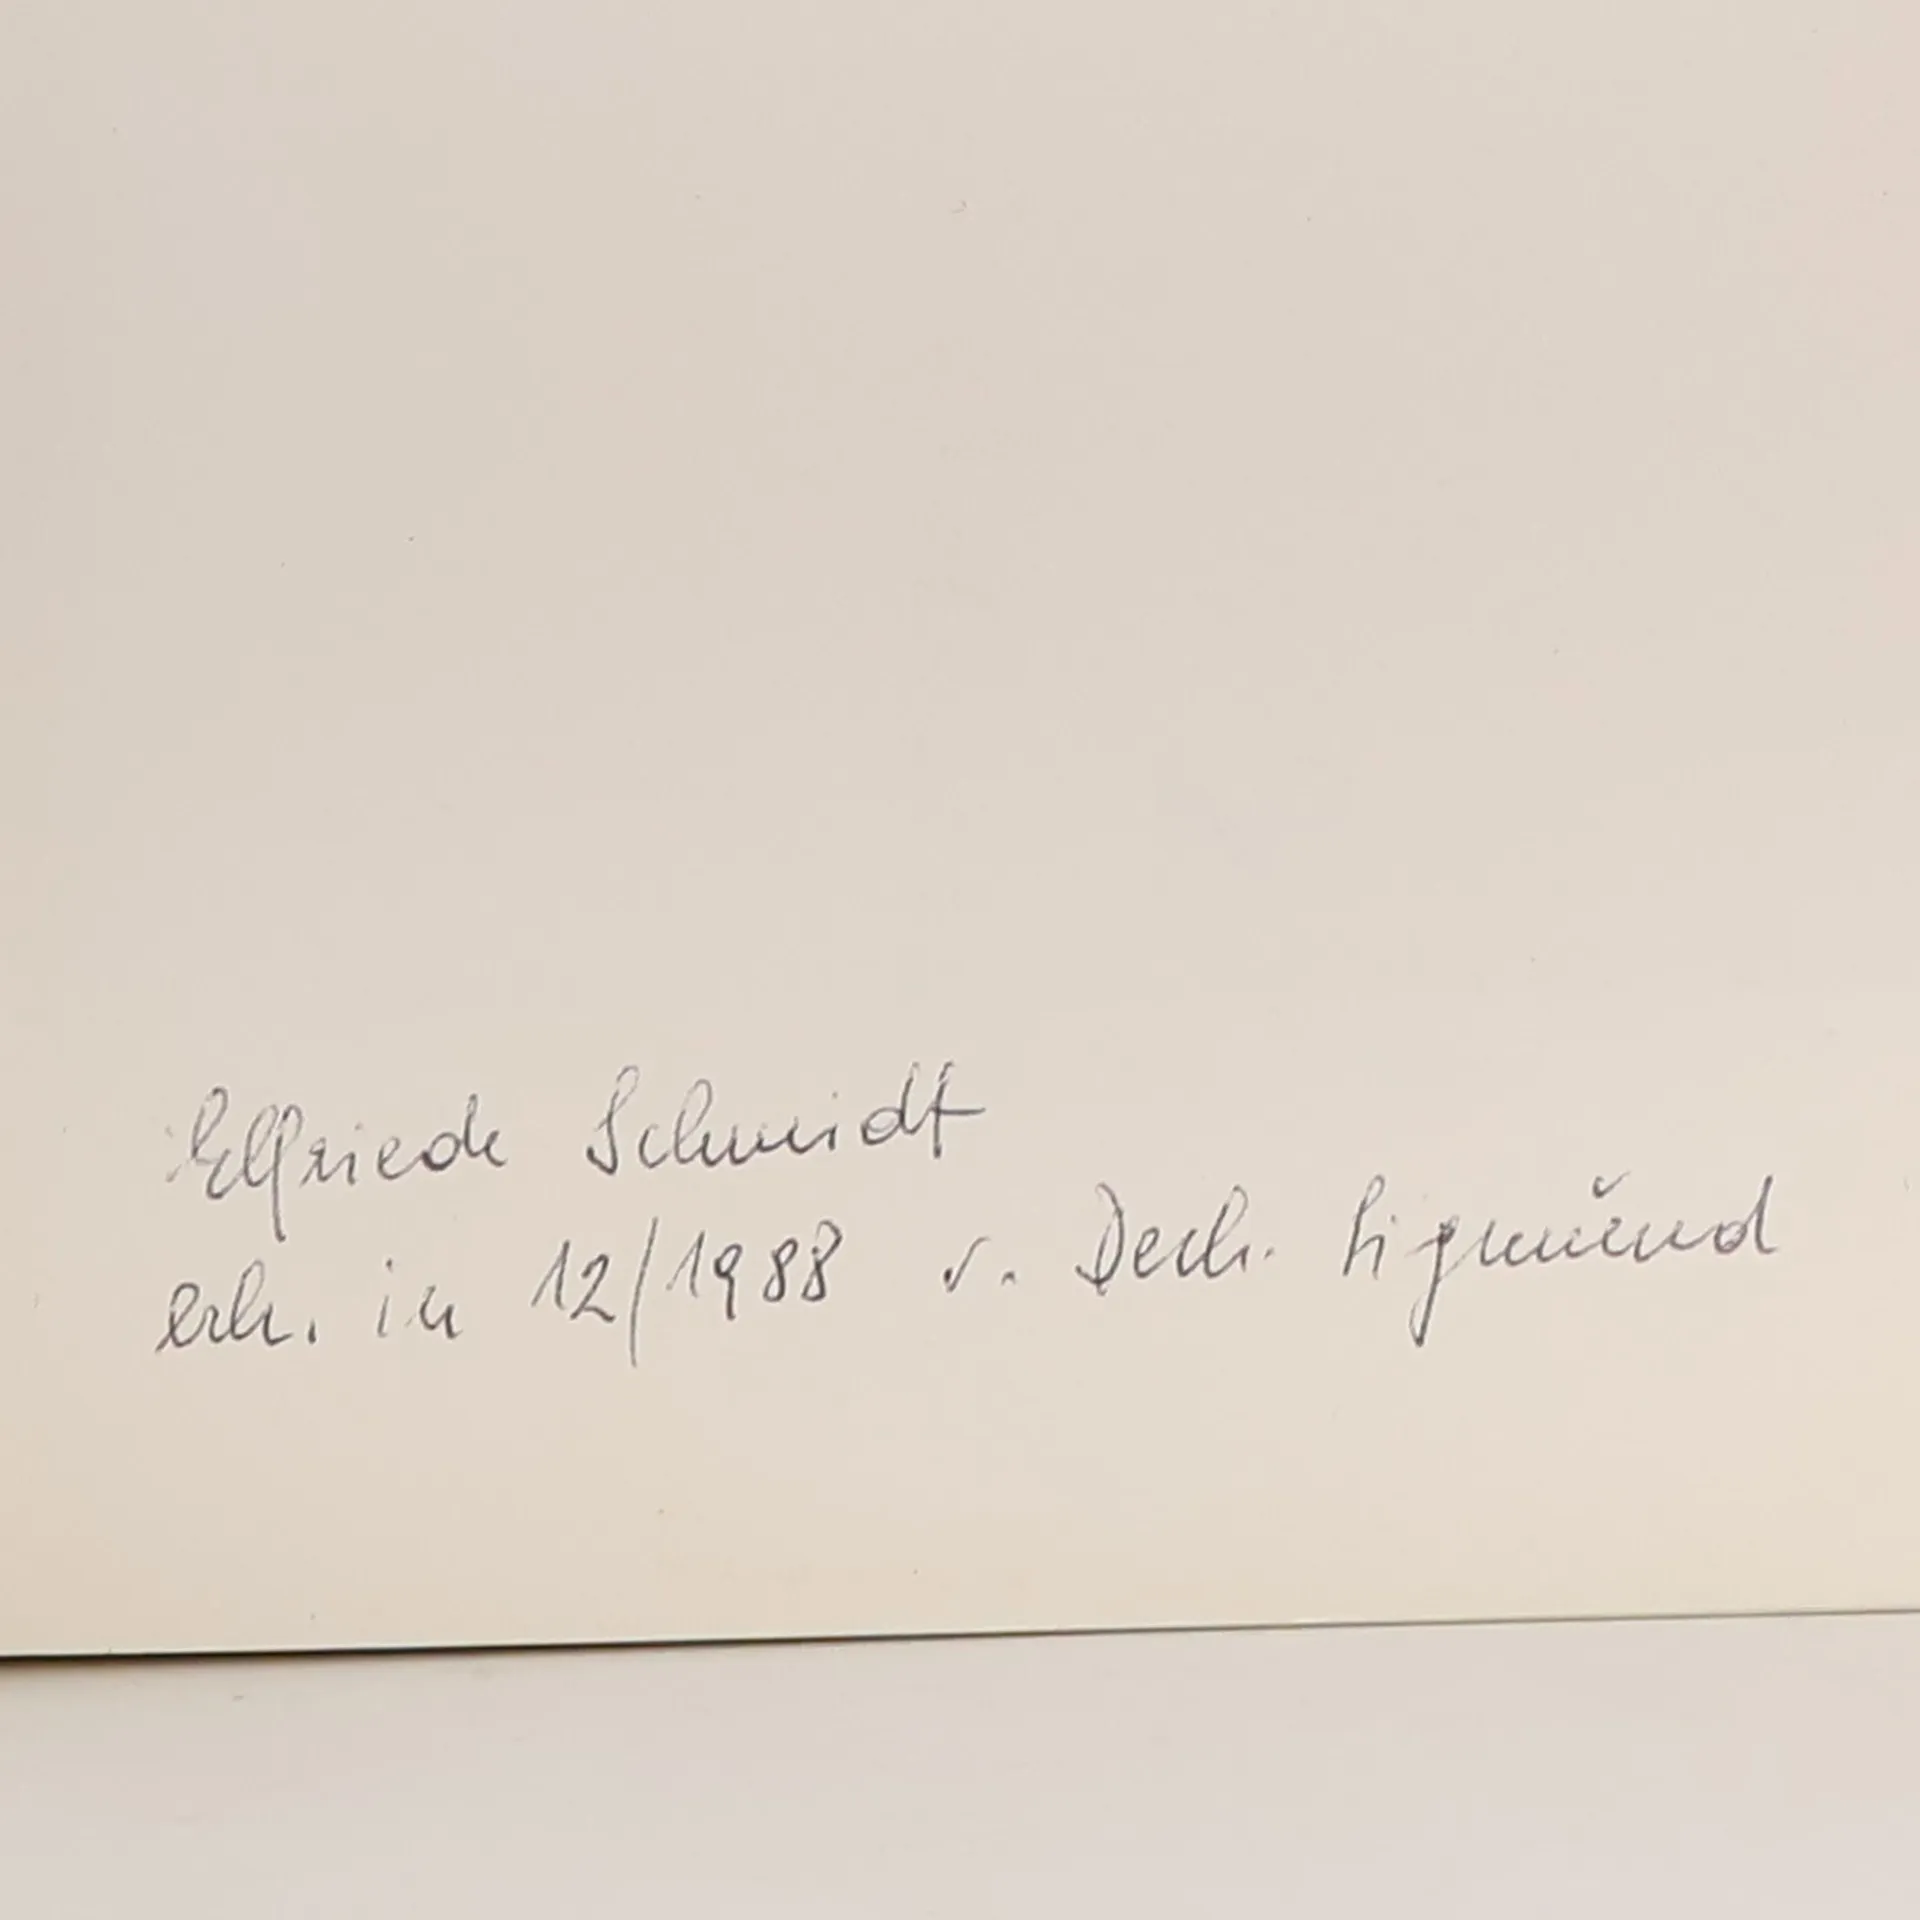 Elfriede Schmidt
erh. in 12/1988 v. Dech. Sigmund